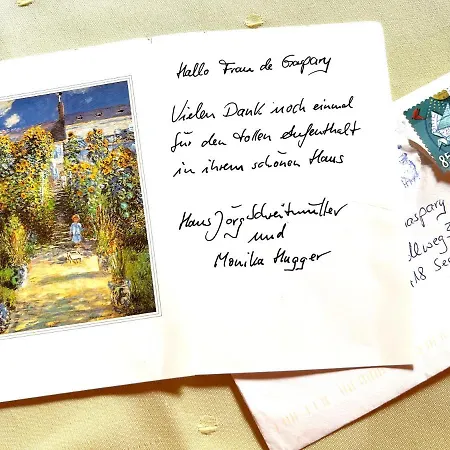 Hallo Frau de Gaspary
Vielen Dank noch einmal
für den tollen Aufenthalt
in ihrem schönen Haus
Hans Jörg Schreitmüller
und
Monika Hugger
85
aspary
lweg
18 See